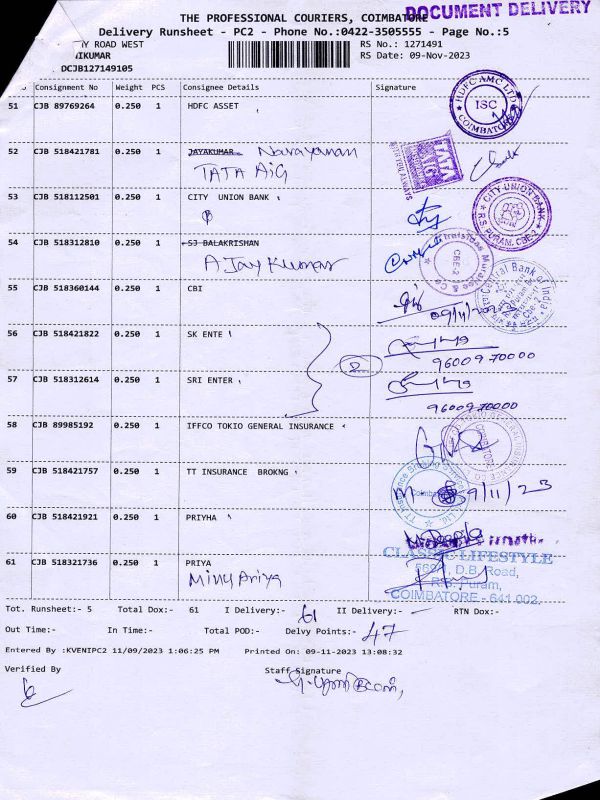 THE PROFESSIONAL COURIERS, COIMBATORE
DOCUMENT DELIVERY
Delivery Runsheet - PC2 - Phone No.:0422-3505555 - Page No.:5
ROAD WEST
RS No.: 1271491
IKUMAR
RS Date: 09-Nov-2023
DCJB127149105
Consignment No Weight PCS Consignee Details Signature
51 CJB 89769264 0.250 1 HDFC ASSET
HDFC AMC LTD ISC COIMBATORE
52 CJB 518421781 0.250 1 JAYAKUMAR Narayanan
TATA AiG
TATA AIG
53 CJB 518112501 0.250 1 CITY UNION BANK
CITY UNION BANK R.S. PURAM, CBE-2
54 CJB 518312810 0.250 1 SJ BALAKRISHAN
AJay Kumar
CBE-2
55 CJB 518360144 0.250 1 CBI
Central Bank of India
56 CJB 518421822 0.250 1 SK ENTE
2
9600970000
57 CJB 518312614 0.250 1 SRI ENTER
9600970000
58 CJB 89985192 0.250 1 IFFCO TOKIO GENERAL INSURANCE
COIMBATORE
59 CJB 518421757 0.250 1 TT INSURANCE BROKNG
9/11/23
60 CJB 518421921 0.250 1 PRIYHA
CLASSIC LIFESTYLE
61 CJB 518321736 0.250 1 PRIYA
Minu Priya
D.B. Road,
R.S. Puram,
COIMBATORE - 641 002.
Tot. Runsheet:- 5 Total Dox:- 61 I Delivery:- 61 II Delivery:- RTN Dox:-
Out Time:- In Time:- Total POD:- Delvy Points:- 47
Entered By :KVENIPC2 11/09/2023 1:06:25 PM Printed On: 09-11-2023 13:08:32
Verified By Staff Signature